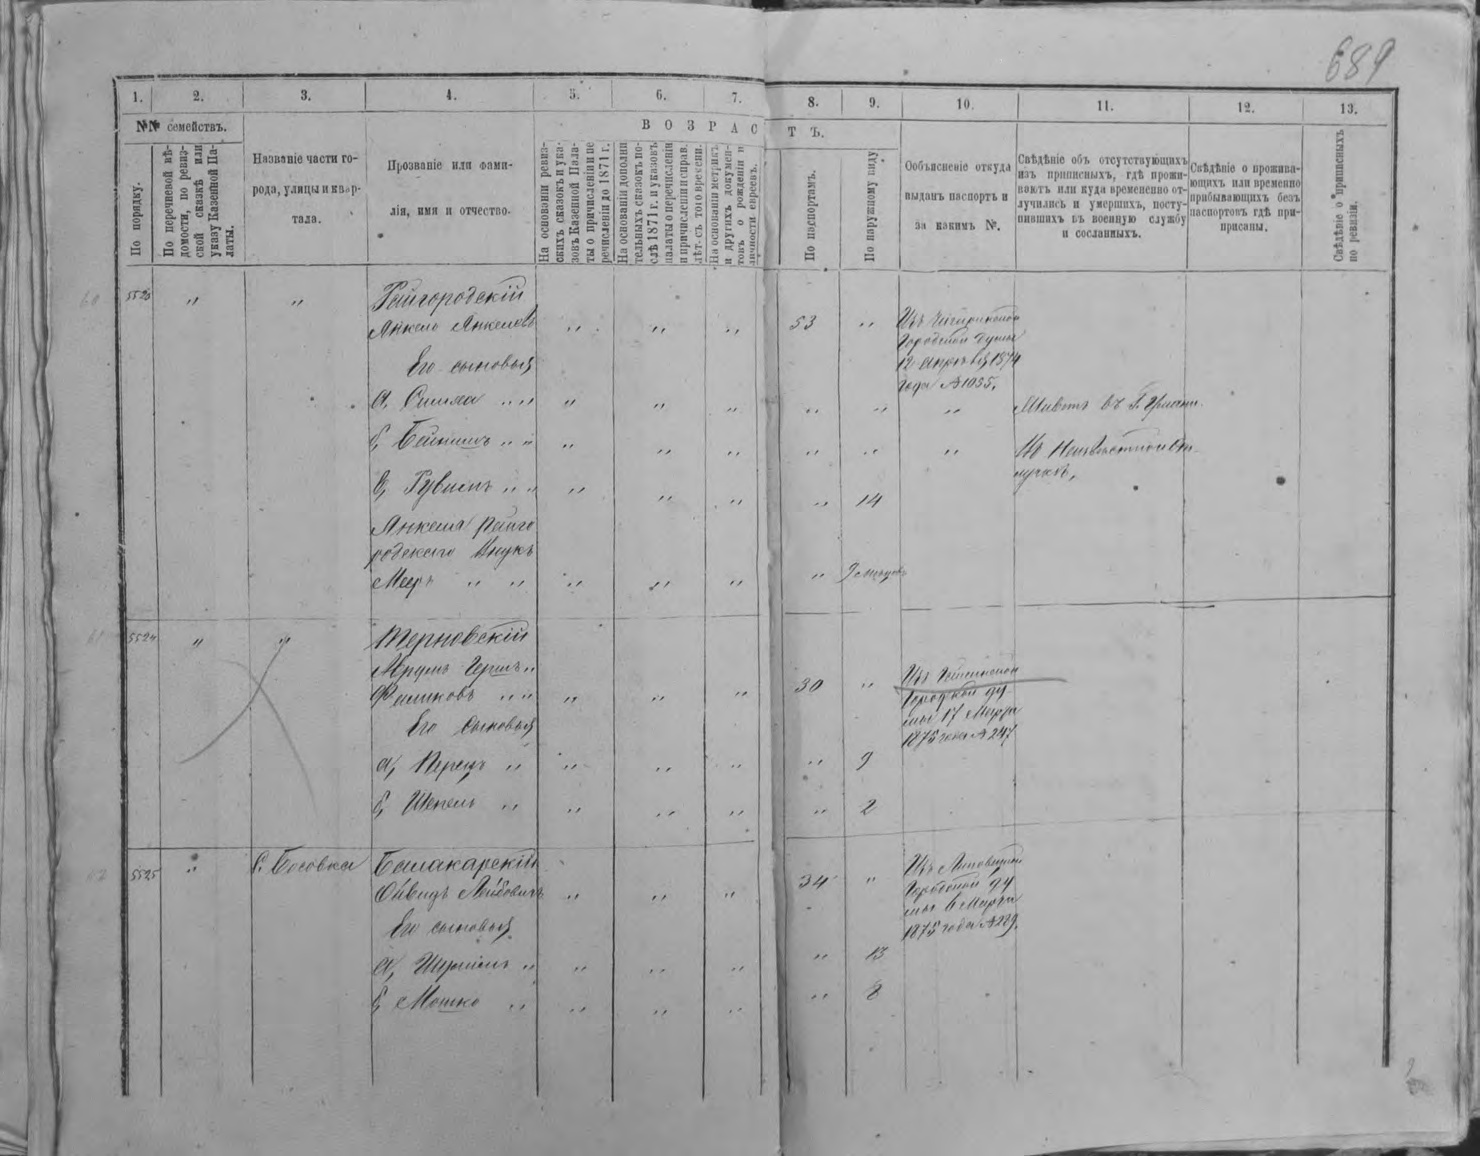 689
1. 2. 3. 4. 5. 6. 7. 8. 9. 10. 11. 12. 13.
№№ семействъ.
В О З Р А С Т Ъ.
По порядку.
По перечневой вѣ-
домости, по ревиз-
ской сказкѣ или
указу Казенной Па-
латы.
Названіе части го-
рода, улицы и квар-
тала.
Прозваніе или фами-
лія, имя и отчество.
На основаніи ревиз-
скихъ сказокъ и ука-
зовъ Казенной Пала-
ты о причисленіи и пе
речисленіи до 1871 г.
На основаніи дополни
тельныхъ сказокъ по-
слѣ 1871 г. и указовъ
палаты о перечисленіи
и причисленіи и справ.
лѣт. съ того времени.
На основаніи метрикъ
и другихъ докумен-
товъ о рожденіи и
личности евреевъ.
По паспортамъ.
По наружному виду.
Объясненіе откуда
выданъ паспортъ и
за какимъ №.
Свѣдѣніе об отсутствующихъ
изъ приписныхъ, гдѣ прожи-
ваютъ или куда временно от-
лучились и умершихъ, посту-
пившихъ въ военную службу
и сосланныхъ.
Свѣдѣніе о прожива-
ющихъ или временно
прибывающихъ безъ
паспортовъ гдѣ при-
писаны.
Свѣдѣніе о приписныхъ
по ревизіи.
60 5523 " " Райгородскій
Янкель Янкелевъ " " " 53 " Изъ Чигиринской
Городской Думы
12 Апрѣля 1874
года № 1055.
Его сыновья
а, Симха " " " " " " " " Живетъ въ г.
б, Бейнишъ " " " " " " " " Въ Неизвѣстной от-
лучкѣ.
в, Рувинъ " " " " " " 14
Янкеля Райго
родскаго внукъ
Мееръ " " " " " " 9 мѣсяцевъ
61 5524 " " Терновскій
Аврумъ Гершъ "
Фаликовъ " " " " " 30 " Изъ
Городской Ду-
мы 17 Марта
1875 года № 247
Его сыновья
а, Перецъ " " " " " 9
б, Шепель " " " " " 2
62 5525 " с. Босовка Балакарскій
Овидъ Лейбовичъ " " " 34 " Изъ Липовецкой
Городской Ду-
мы 6 Марта
1875 года № 229.
Его сыновья
а, " " " " " 13
б, Мошко " " " " " 8